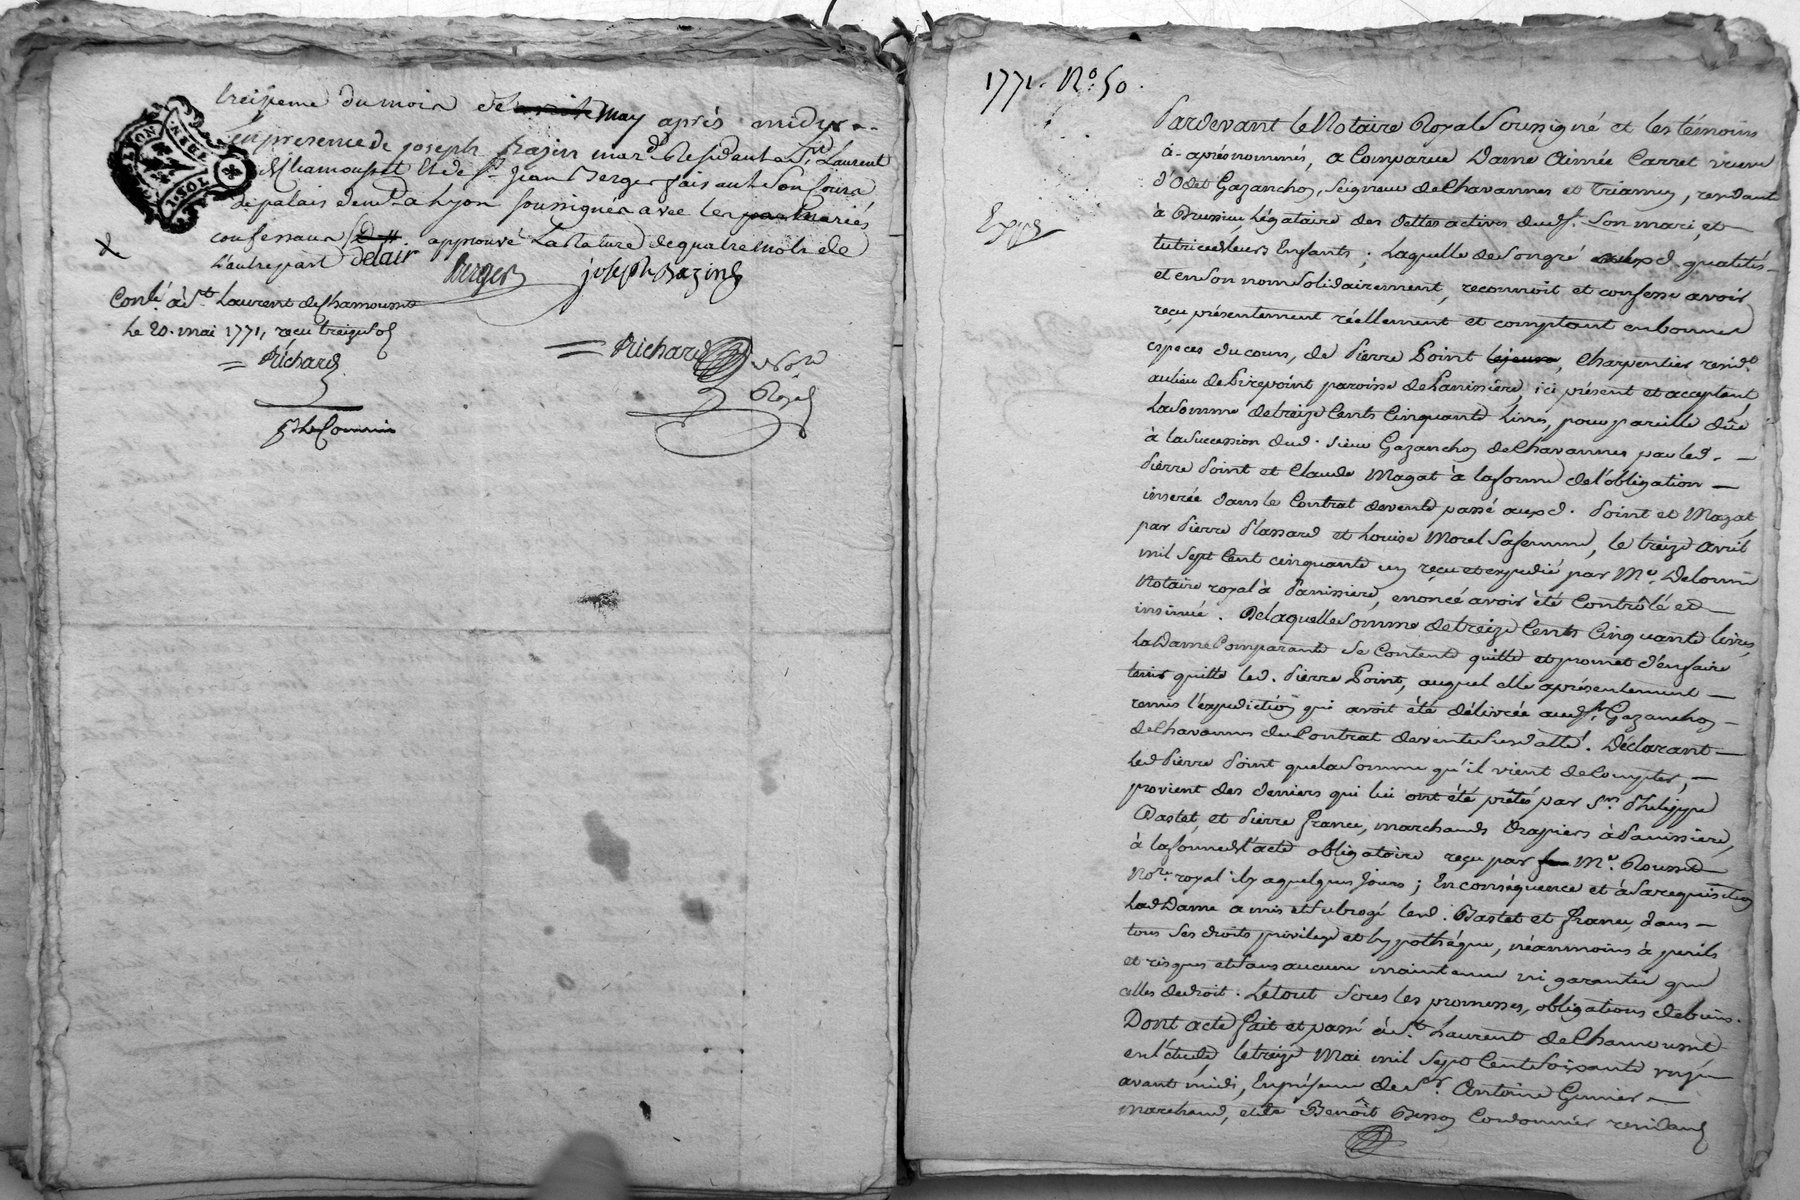 treizieme du mois de may après midy
En presence de joseph Bazin mard Residant a St Laurent
de Chamousset Et de Sr Jean Berger faisant Son Cours
de palais demt a Lyon soussignés avec les mariés
confessans approuvé La rature de quatre mots de
L'autre part Delair
Berger joseph Bazin
Conlé à St Laurent de Chamousset
Le 20. mai 1771, reçu treize sols
= Richard
= Richard Nore
Royal
LYON
1771. No. 50.
Expié
Pardevant le Notaire Royal Soussigné et les témoins
ci-après nommés, a Comparue Dame Aimée Carret veuve
d'Odet Gazanchon, Seigneur de Chavannes et Trianny, residante
à Brussieu, Légataire des dettes actives dud. Sr. Son mari, et
tutrice de leurs Enfants ; Laquelle de Son gré auxd. qualités
et en Son nom Solidairement, reconnoit et confesse avoir
reçu présentement réellement et comptant en bonnes
especes du cours, de Pierre Point lejeune, Charpentier resid.t
au lieu de Pirepoint paroisse de Panissiere, ici présent et acceptant,
La Somme de treize Cents Cinquante Livres, pour pareille dûe
à la Succession dud. Sieur Gazanchon de Chavannes par led.
Pierre Point et Claude Magat à la forme de l'obligation
inserée dans le Contrat de vente passé auxd. Point et Magat,
par Pierre Plassard et Louise Morel Sa femme, le treize avril
mil Sept Cent cinquante un reçu et expedié par Me. Delorme
Notaire royal à Panissiere, enoncé avoir été Contrôlé et
insinué. De laquelle Somme de treize Cents Cinquante livres,
La Dame Comparante Se Contente quitte et promet d'en faire
tenir quitte led. Pierre Point, auquel elle a présentement
remis l'expedition qui avoit été délivrée aud. Sr. Gazanchon
de Chavannes du Contrat de vente Susdatté. Déclarant
Led Pierre Point que la Somme qu'il vient de Compter,
provient des deniers qui lui ont été prêtés par Srs. Philippe
Bastet, et Pierre France, marchands drapiers à Panissiere,
à la forme de l'acte obligatoire reçu par Me. Rousset
Nore. royal il y a quelques jours ; En conséquence et à Sa requisition
Lad Dame a mis et Subrogé lesd. Bastet et France, dans
tous Ses droits privilege et hypothéque, néanmoins à perils
et risques et Sans aucune maintenue ni garantie que
celles de droit. Le tout Sous les promesses, obligations de biens.
Dont acte fait et passé à St. Laurent de Chamousset
en l'étude, le treize Mai mil Sept Cent Soixante onze
avant midi, En présence de Sr. Antoine Grinier
marchand, et de Benôit Besson Cordonnier residans